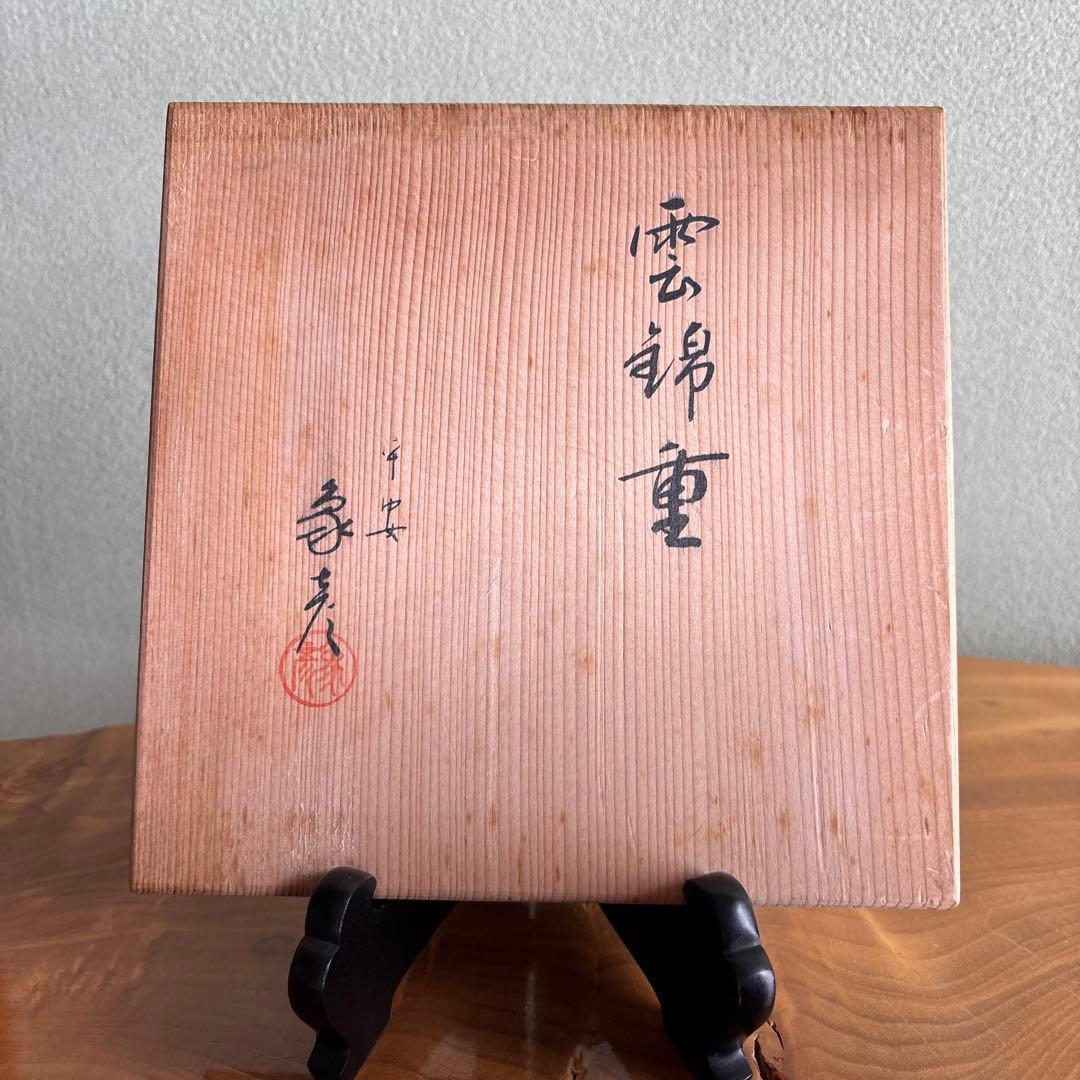 雲錦重
平安
象彦